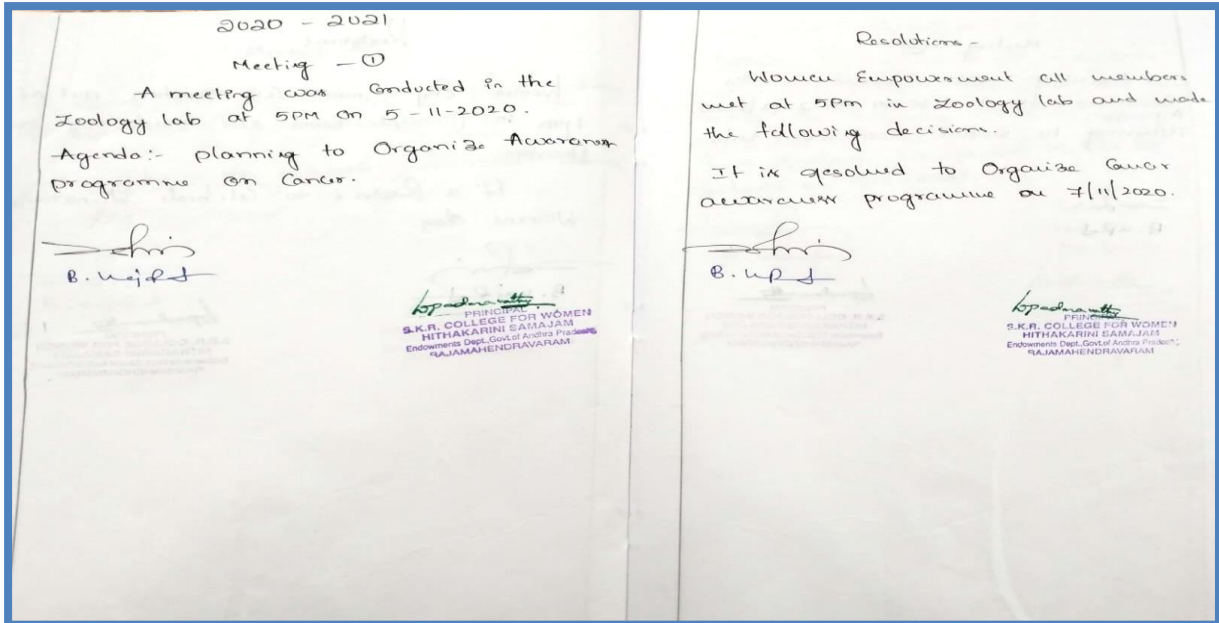 2020 - 2021
Meeting - ①
A meeting was Conducted in the
Zoology lab at 5PM on 5-11-2020.
Agenda:- planning to Organize Awareness
programme on Cancer.
B.
PRINCIPAL
S.K.R. COLLEGE FOR WOMEN
HITHAKARINI SAMAJAM
Endowments Dept.,Govt.of Andhra Pradesh,
RAJAMAHENDRAVARAM
Resolutions -
Women Empowerment all members
met at 5Pm in Zoology lab and made
the following decisions.
It is resolved to Organize Cancer
awareness programme on 7/11/2020.
B.
PRINCIPAL
S.K.R. COLLEGE FOR WOMEN
HITHAKARINI SAMAJAM
Endowments Dept.,Govt.of Andhra Pradesh,
RAJAMAHENDRAVARAM